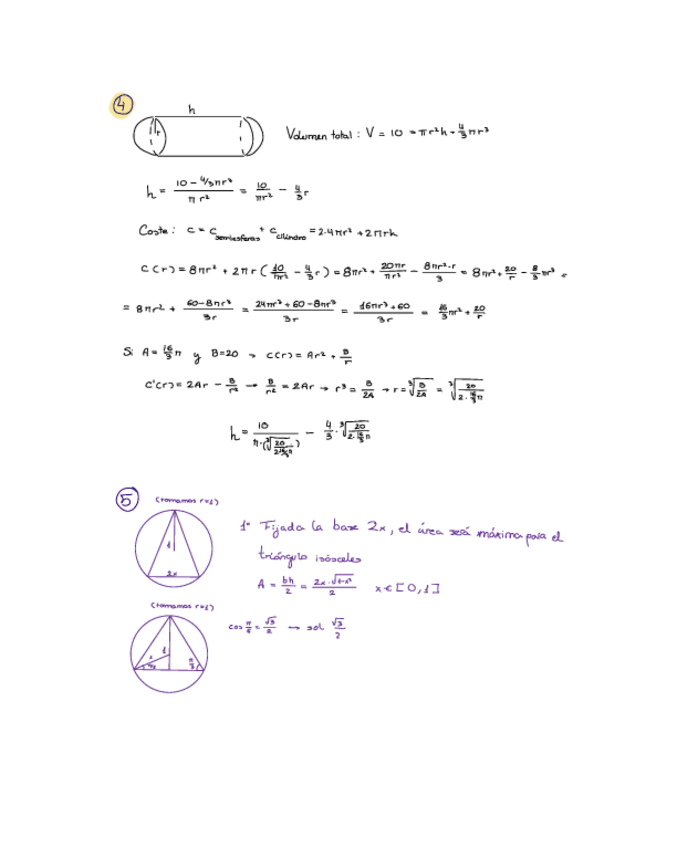 4
h
r
Volumen total: V = 10 = πr²h + 4/3 πr³
h = (10 - 4/3πr³)/(πr²) = 10/(πr²) - 4/3 r
Coste: C = C semiesferas + C cilindro = 2·4πr² + 2πrh
C(r) = 8πr² + 2πr (10/(πr²) - 4/3 r) = 8πr² + 20πr/(πr²) - (8πr²·r)/3 = 8πr² + 20/r - 8/3 πr² =
= 8πr² + (60-8πr³)/(3r) = (24πr³ + 60 - 8πr³)/(3r) = (16πr³ + 60)/(3r) = 16/3 πr² + 20/r
Si A = 16/3 π y B = 20 → C(r) = Ar² + B/r
C'(r) = 2Ar - B/r² → B/r² = 2Ar → r³ = B/2A → r = ∛(B/2A) = ∛(20/(2·16/3 π))
h = 10/(π·(∛(20/(2·16/3 π)))) - 4/3 · ∛(20/(2·16/3 π))
5
(tomamos r=1)
1
2x
1º Fijada la base 2x, el área será máxima para el
triángulo isósceles
A = bh/2 = (2x·√(1-x²))/2 x ∈ [0,1]
(tomamos r=1)
1
π/3
cos π/6 = √3/2 → sol √3/2